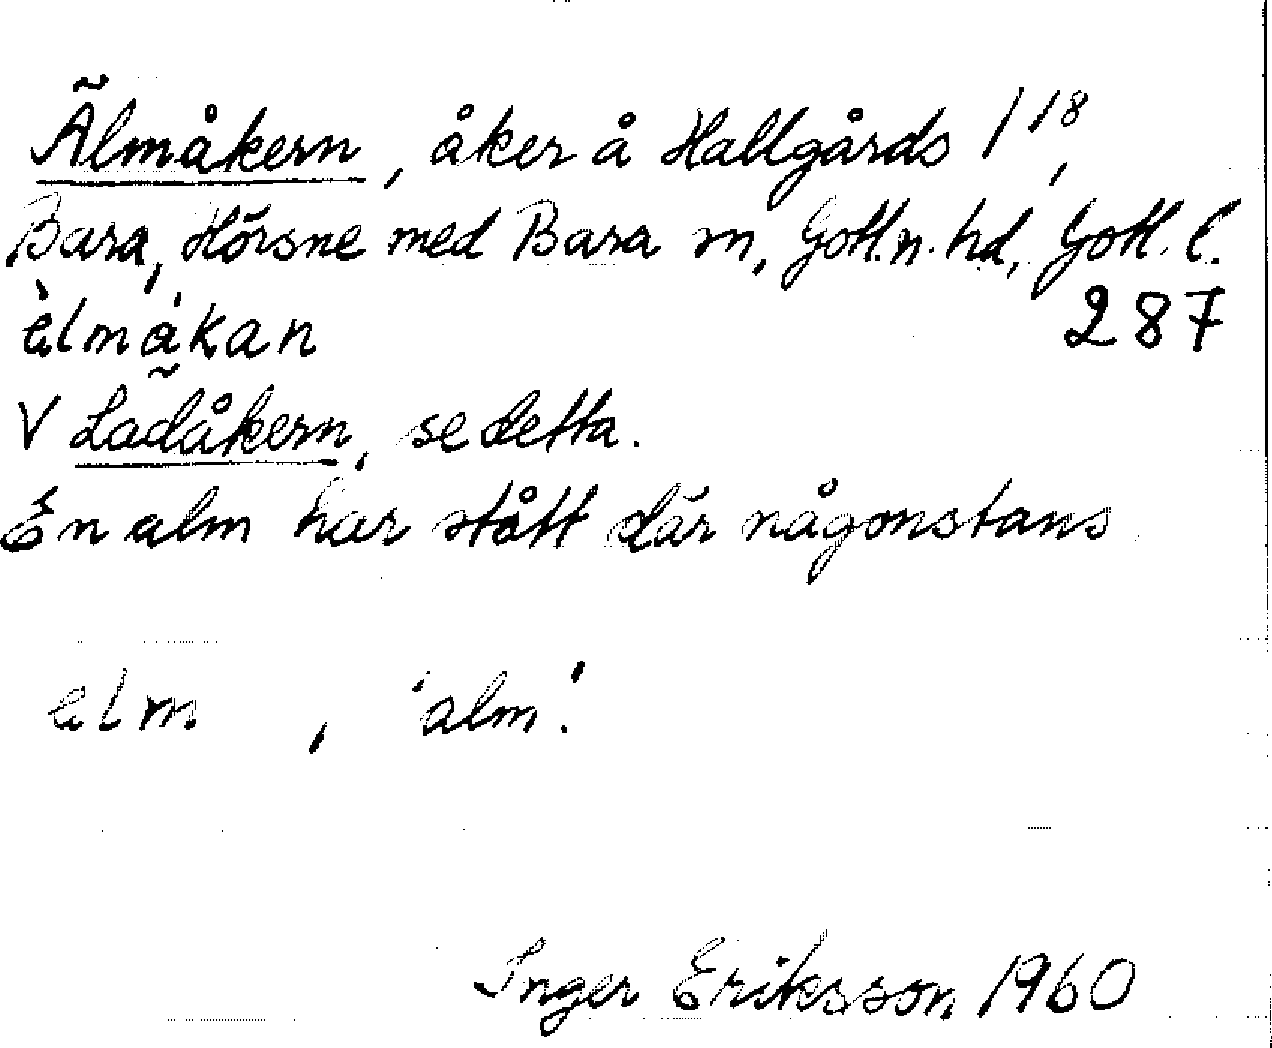 Älmåkern, åker å Hallgårds 1¹⁸,
Bara, Hörsne med Bara sn, Gotl.n.hd, Gotl.l.
älmåkan 287
V Ladåkern, se detta.
En alm har stått där någonstans
älm , 'alm'.
Inger Eriksson 1960